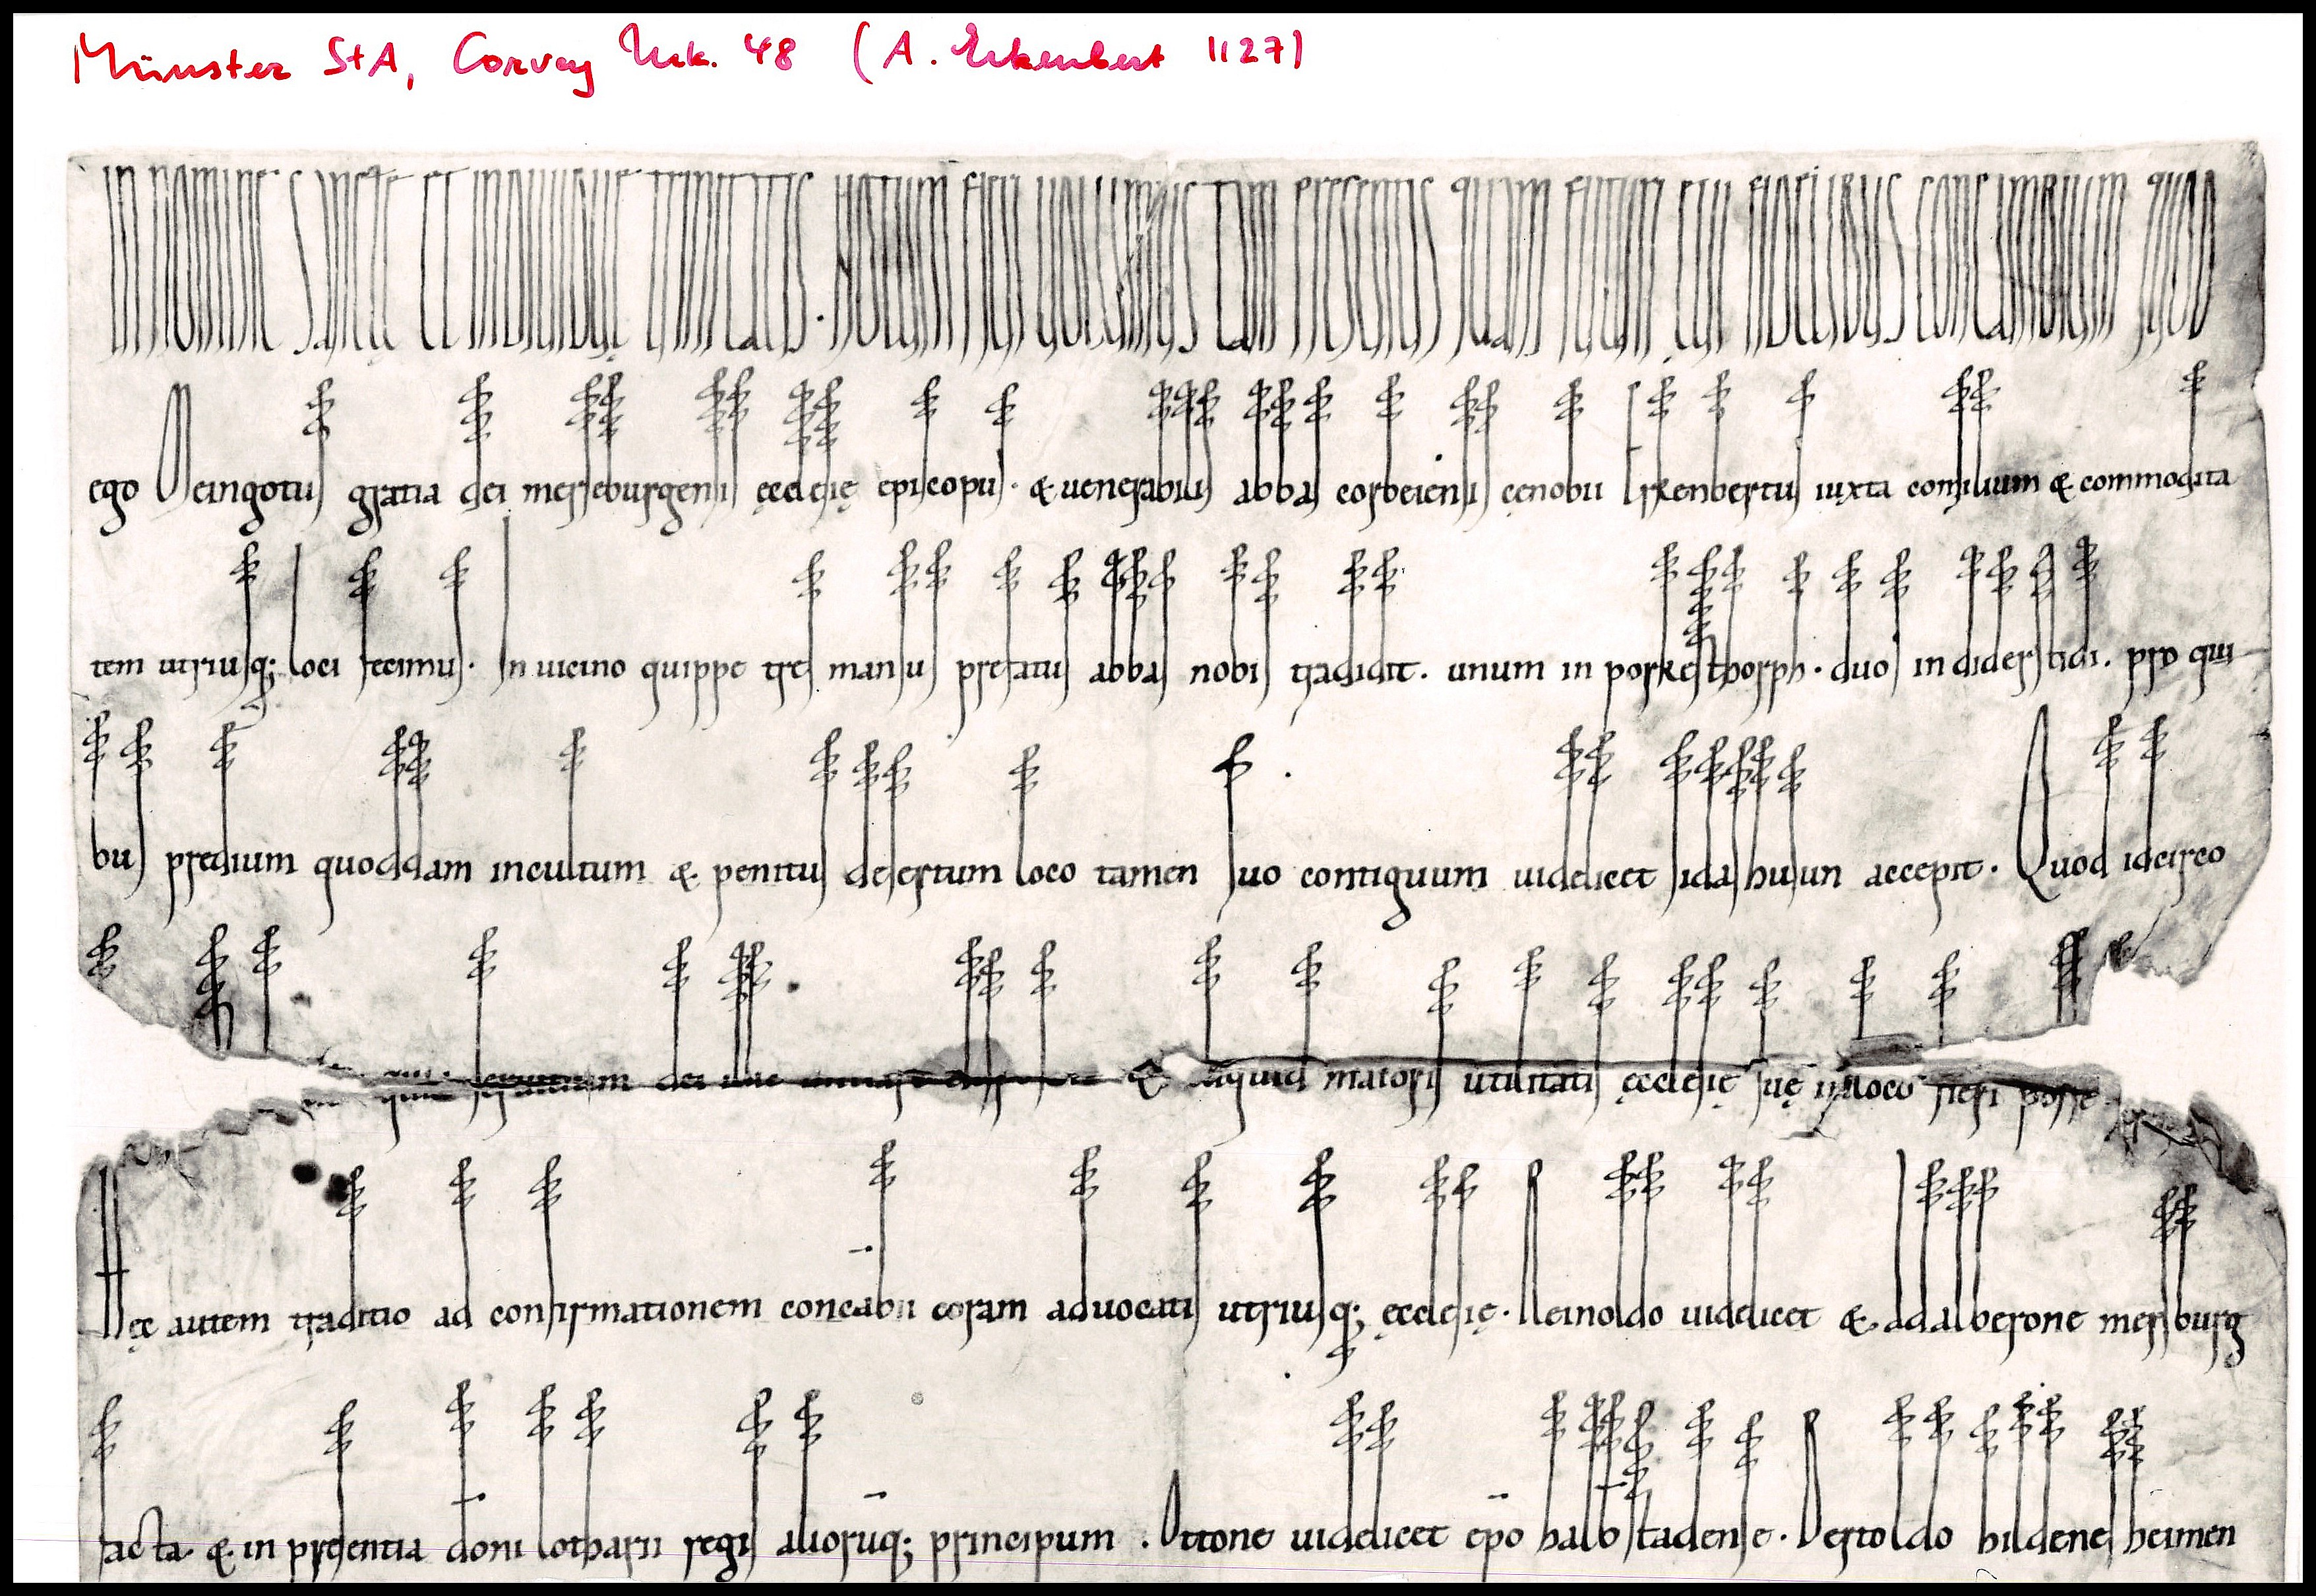 Münster StA, Corvey Urk. 48 (A. Erkenbert 1127)
IN NOMINE SANCTĘ ET INDIVIDUĘ TRINITATIS. NOTUM FIERI VOLUMUS TAM PRESENTIBUS QUAM FUTURIS CHRISTI FIDELIBUS CONCAMBIUM QUOD
ego Meingotus gratia dei merseburgensis ęcclesię episcopus. & uenerabilis abbas corbeiensis cęnobii Erkenbertus iuxta consilium & commodita
tem utriusq; loci fecimus. In uicino quippe tres mansus prefatus abbas nobis tradidit. unum in porkesthorph. duos in diderstidi. pro qui
bus predium quoddam incultum & penitus desertum loco tamen suo contiguum uidelicet sidashusun accepit. Quod idcirco
seruitium dei & aliquid maioris utilitatis ęcclesię suę in loco fieri posse
Hęc autem traditio ad confirmationem concabii coram aduocatis utriusq; ęcclesię. Reinoldo uidelicet & adalberone mersburg
facta & in presentia doni lotharii regis aliorūq; principum. Ottone uidelicet epō halbstadense. Bertoldo hildenesheimen